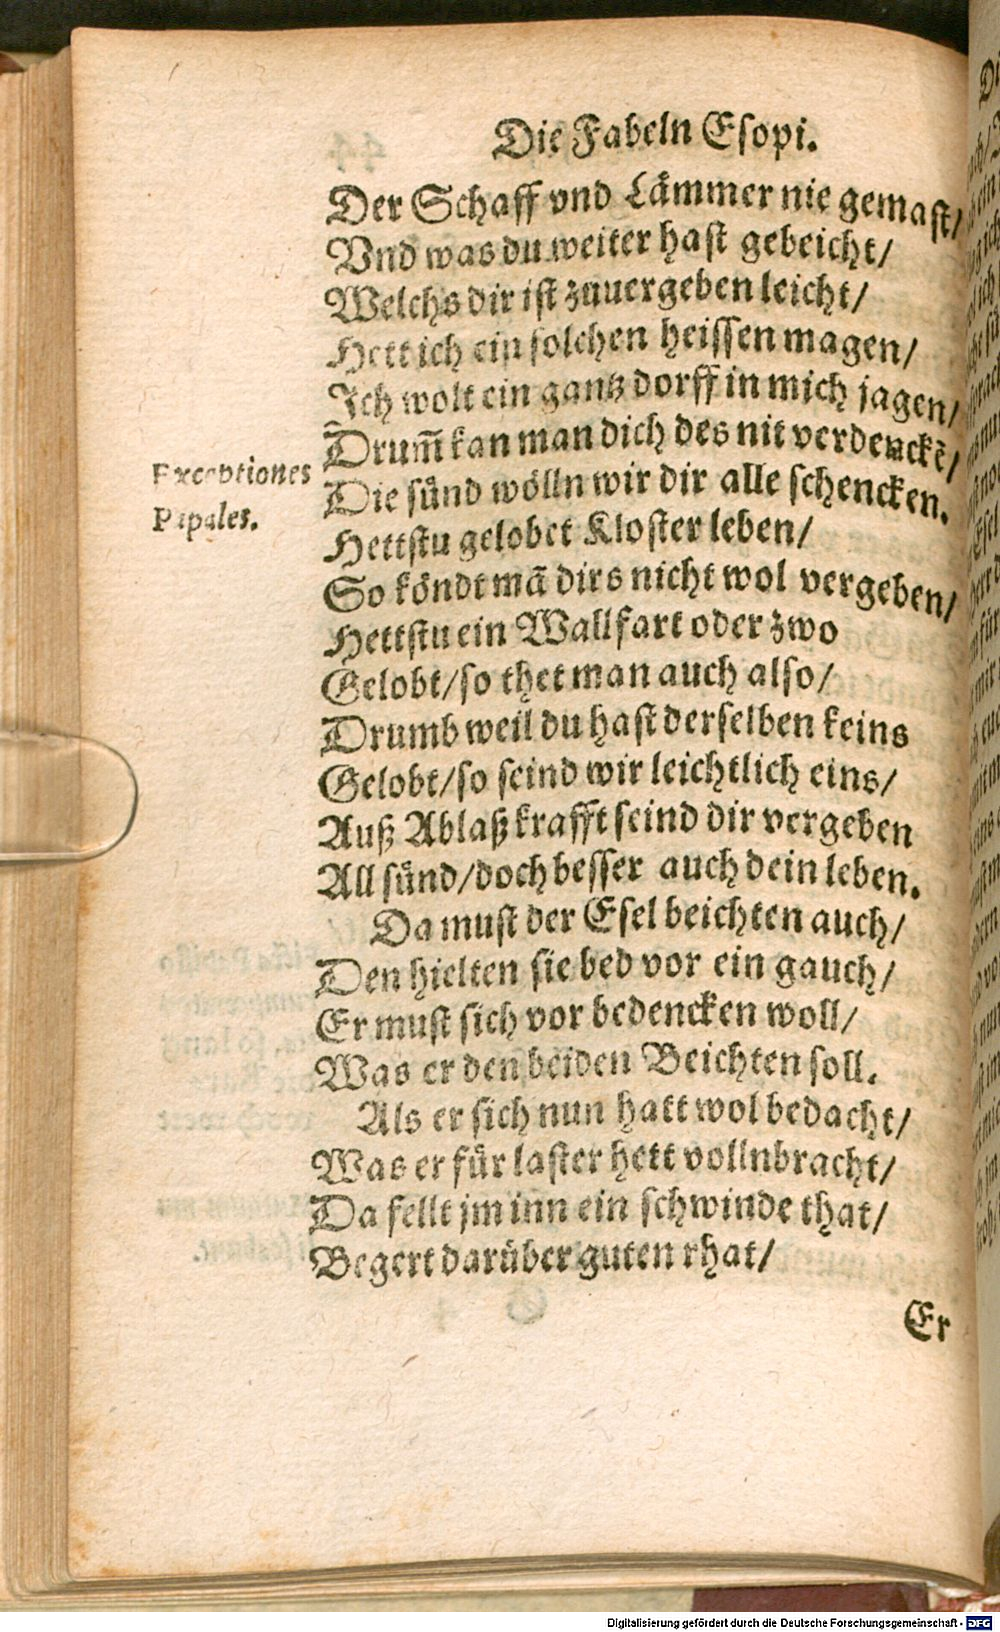 Die Fabeln Esopi.
Der Schaff vnd Lämmer nie gemast/
Vnd was du weiter hast gebeicht/
Welchs dir ist zuuergeben leicht/
Hett ich ein solchen heissen magen/
Ich wolt ein gantz dorff in mich jagen/
Drum̃ kan man dich des nit verdenckẽ/
Exceptiones
Papales.
Die sünd wölln wir dir alle schencken.
Hettstu gelobet Kloster leben/
So köndt mã dirs nicht wol vergeben/
Hettstu ein Wallfart oder zwo
Gelobt/so thet man auch also/
Drumb weil du hast derselben keins
Gelobt/so seind wir leichtlich eins/
Auß Ablaß krafft seind dir vergeben
All sünd/doch besser auch dein leben.
Da must der Esel beichten auch/
Den hielten sie bed vor ein gauch/
Er must sich vor bedencken woll/
Was er den beiden Beichten soll.
Als er sich nun hatt wol bedacht/
Was er für laster hett vollnbracht/
Da fellt jm inn ein schwinde that/
Begert darüber guten rhat/
Er
Digitalisierung gefördert durch die Deutsche Forschungsgemeinschaft - DFG